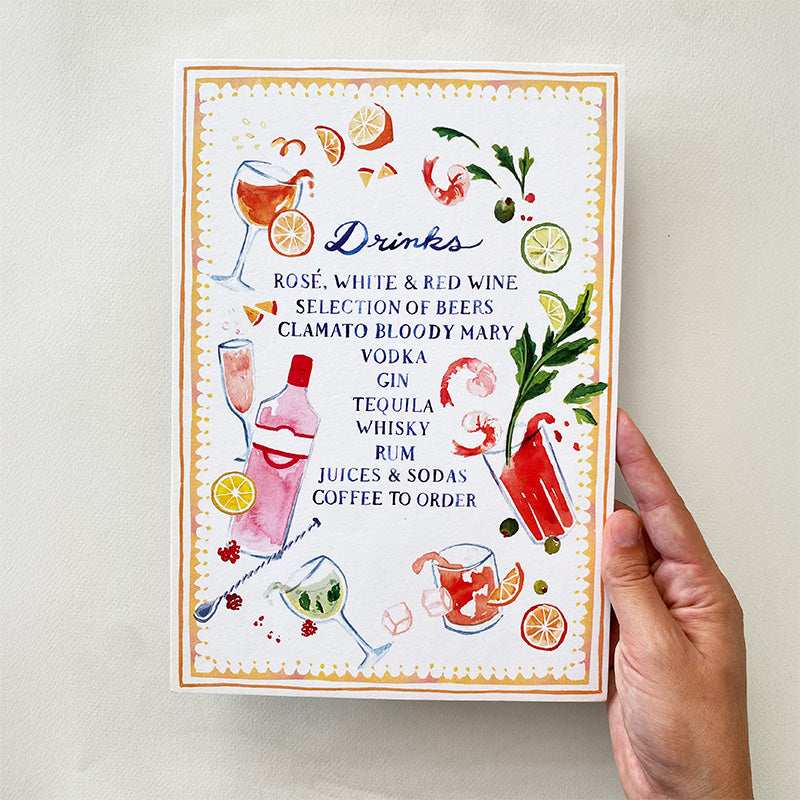 Drinks
ROSÉ, WHITE & RED WINE
SELECTION OF BEERS
CLAMATO BLOODY MARY
VODKA
GIN
TEQUILA
WHISKY
RUM
JUICES & SODAS
COFFEE TO ORDER